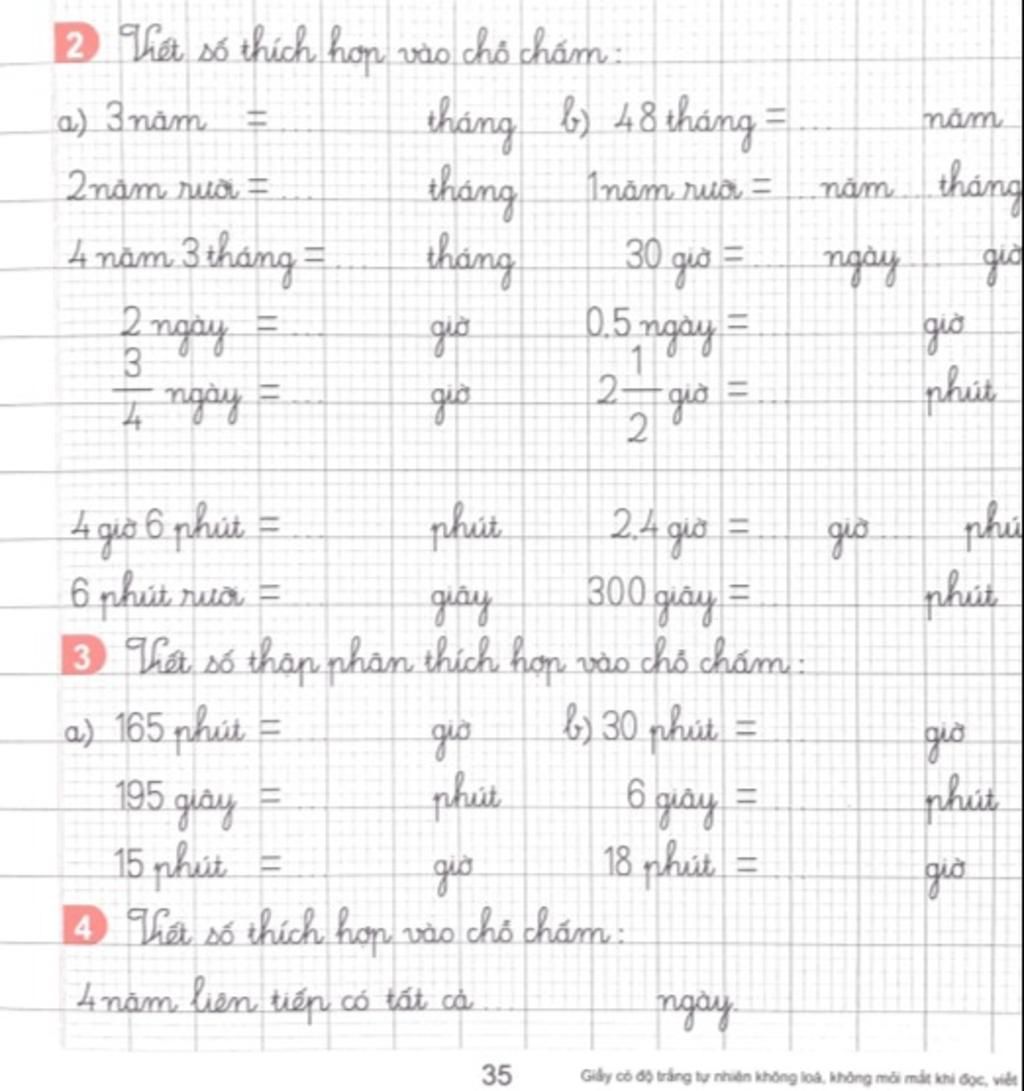 2 Viết số thích hợp vào chỗ chấm:
a) 3 năm = ... tháng b) 48 tháng = ... năm
2 năm rưỡi = ... tháng 1 năm rưỡi = ... năm ... tháng
4 năm 3 tháng = ... tháng 30 giờ = ... ngày ... giờ
2 ngày = ... giờ 0,5 ngày = ... giờ
3/4 ngày = ... giờ 2 1/2 giờ = ... phút
4 giờ 6 phút = ... phút 2,4 giờ = ... giờ ... phú
6 phút rưỡi = ... giây 300 giây = ... phút
3 Viết số thập phân thích hợp vào chỗ chấm:
a) 165 phút = ... giờ b) 30 phút = ... giờ
195 giây = ... phút 6 giây = ... phút
15 phút = ... giờ 18 phút = ... giờ
4 Viết số thích hợp vào chỗ chấm:
4 năm liên tiếp có tất cả ... ngày.
35 Giấy có độ trắng tự nhiên không loá, không mỏi mắt khi đọc, viết